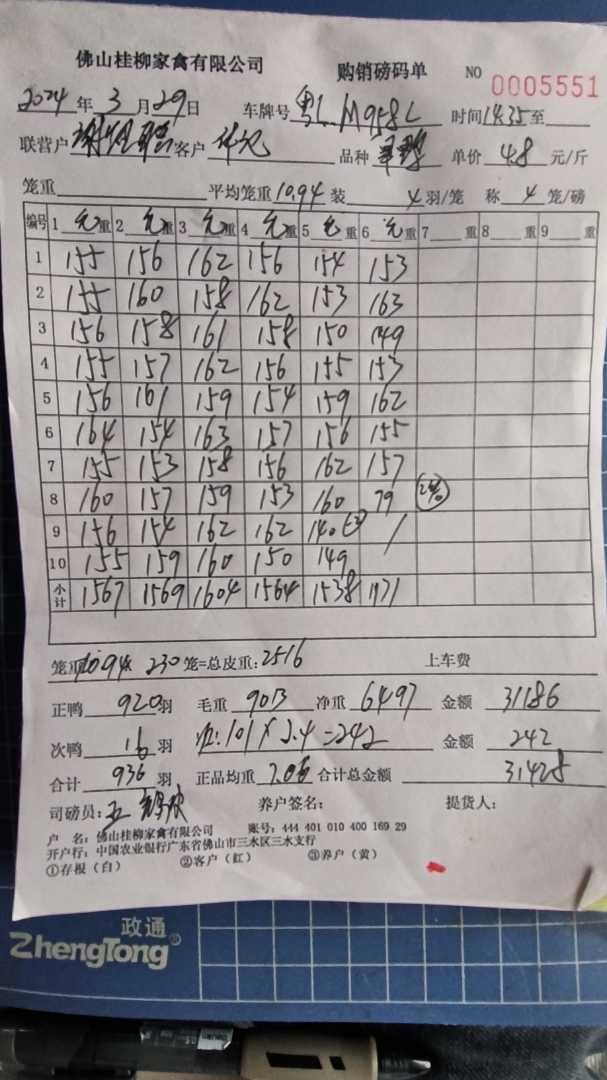 佛山桂柳家禽有限公司 购销磅码单 NO 0005551
2024年3月29日 车牌号 粤L M958L 时间 14:35 至
联营户 客户 华记 品种 单价 4.8 元/斤
笼重 平均笼重 10.94 装 4 羽/笼 称 4 笼/磅
编号 1 毛重 2 毛重 3 毛重 4 毛重 5 毛重 6 毛重 7 重 8 重 9 重
1 155 156 162 156 154 153
2 155 160 158 162 153 163
3 156 158 161 158 150 149
4 155 157 162 156 155 153
5 156 161 159 154 159 162
6 164 154 163 157 156 155
7 155 153 158 156 162 157
8 160 157 159 153 160 79
9 156 154 162 162 140 /
10 155 159 160 150 149
小计 1567 1569 1604 1564 1538 1171
笼重 10.94 x 230 笼=总皮重: 2516 上车费
正鸭 920 羽 毛重 9013 净重 6497 金额 31186
次鸭 16 羽 101 X 2.4 = 242 金额 242
合计 936 羽 正品均重 7.06 合计总金额 31428
司磅员: 养户签名: 提货人:
户 名: 佛山桂柳家禽有限公司 账号: 444 401 010 400 169 29
开户行: 中国农业银行广东省佛山市三水区三水支行
①存根(白) ②客户(红) ③养户(黄)
政通
ZhengTong®